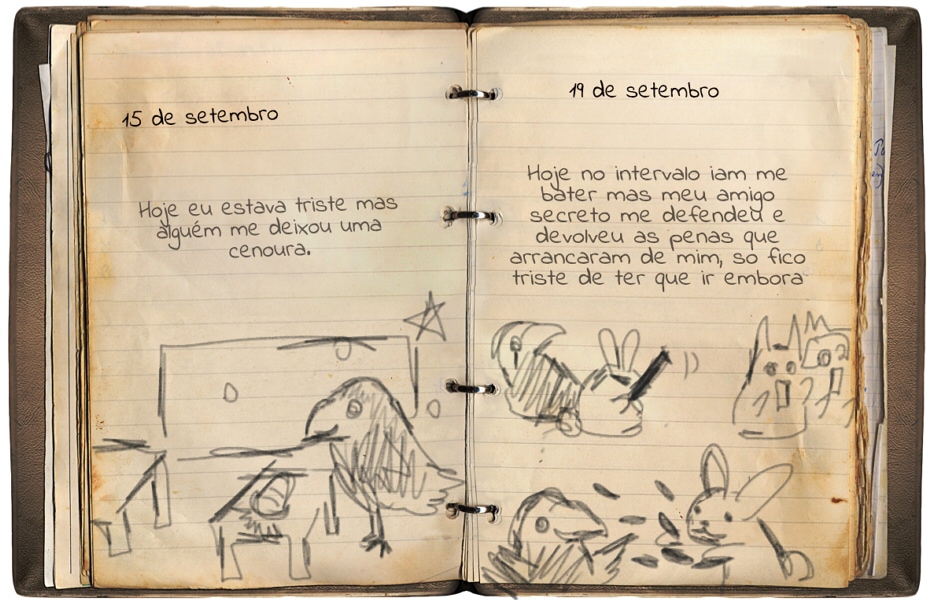 15 de setembro
Hoje eu estava triste mas
alguém me deixou uma
cenoura.
19 de setembro
Hoje no intervalo iam me
bater mas meu amigo
secreto me defendeu e
devolveu as penas que
arrancaram de mim, so fico
triste de ter que ir embora